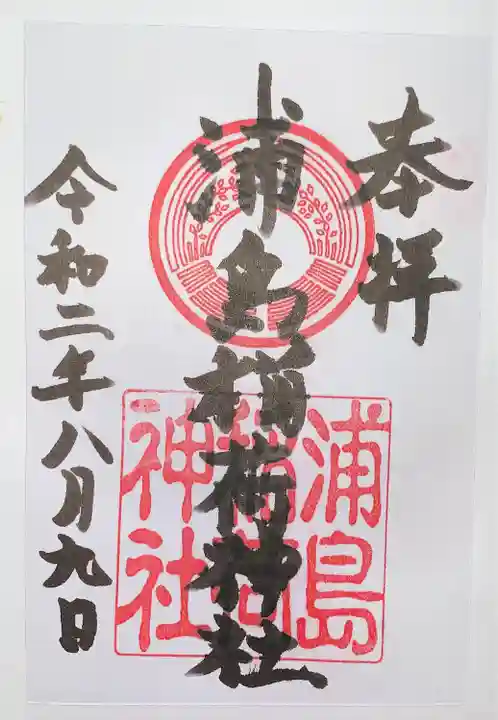 奉拝
浦島稲荷神社
浦島
稲荷
神社
令和二年八月九日